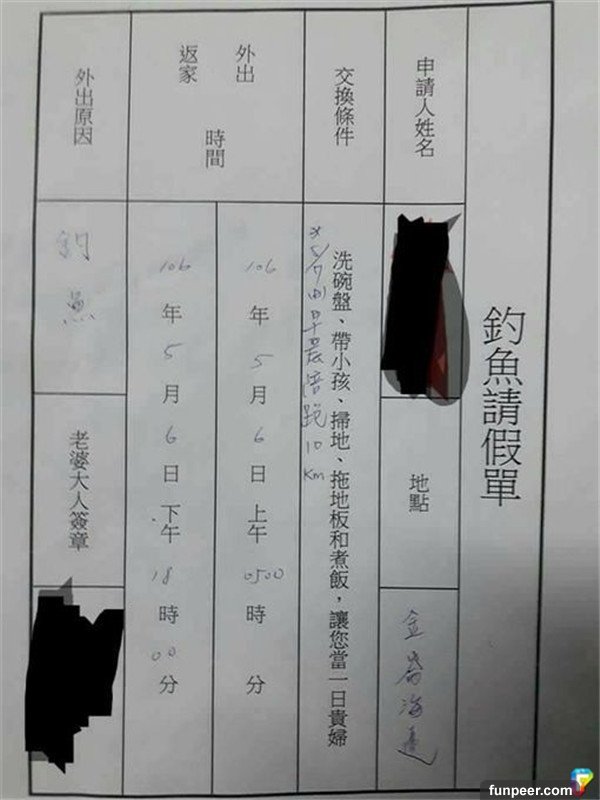 釣魚請假單
申請人姓名
地點
金崙海邊
交換條件
洗碗盤、帶小孩、掃地、拖地板和煮飯，讓您當一日貴婦
早晨陪跑10km
外出
返家
時間
106年5月6日上午0500時 分
106年5月6日下午18時00分
外出原因
釣魚
老婆大人簽章
funpeer.com